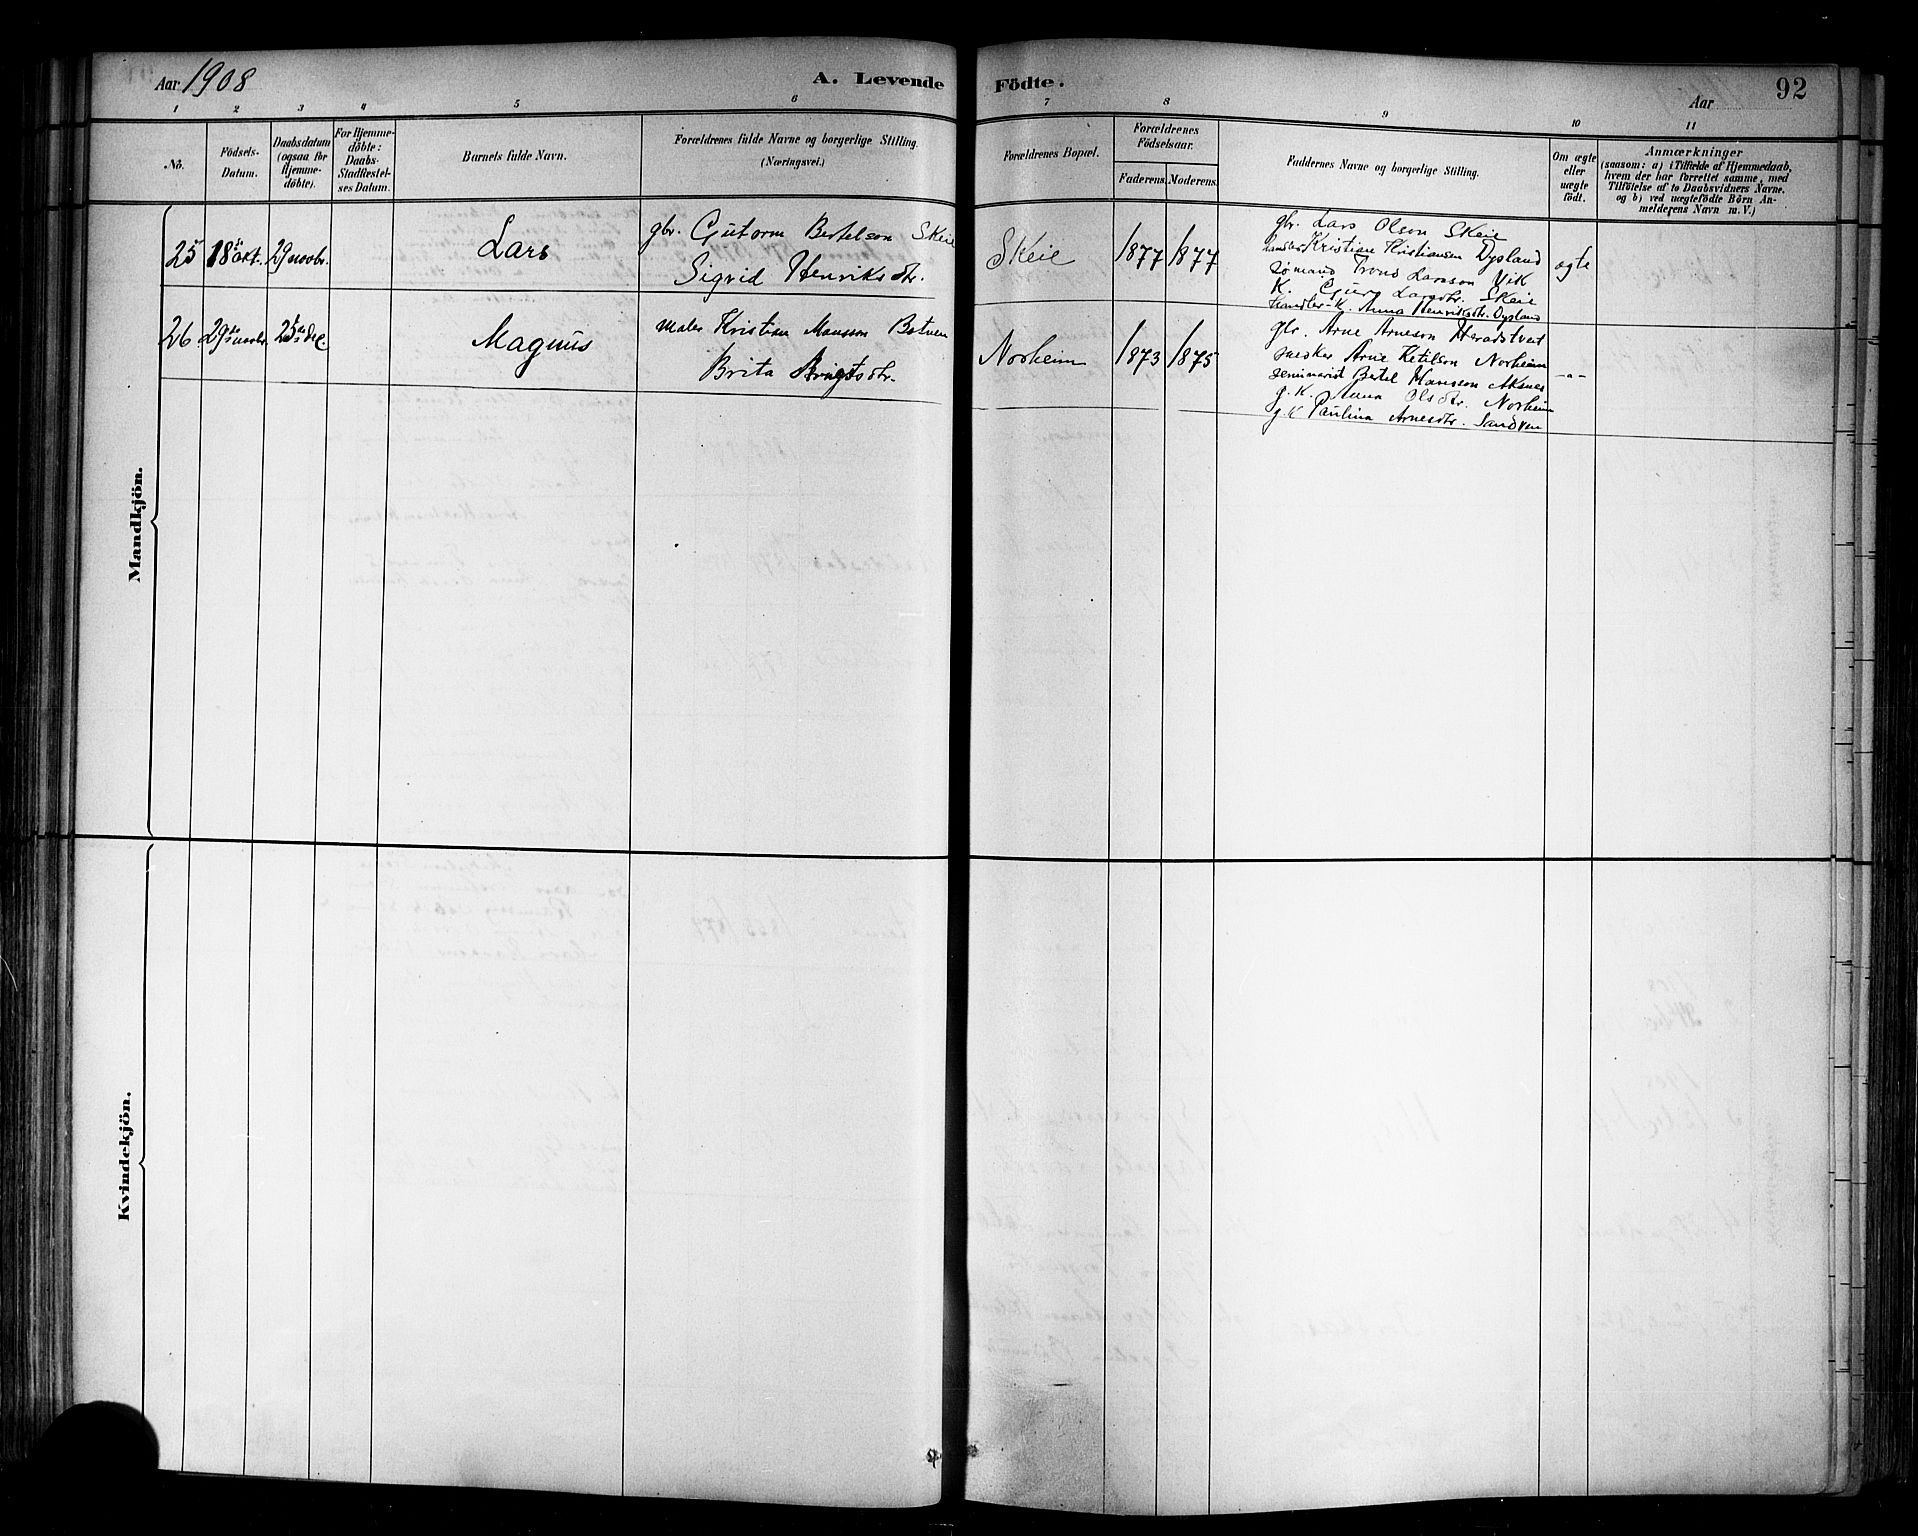 Aar 1908
A. Levende
Födte.
Aar
92
1 2 3 4 5 6 7 8 9 10 11
No.
Födsels-
Datum.
Daabsdatum
(ogsaa for
Hjemme-
döbte).
For Hjemme-
döbte:
Daabs-
Stadfæstel-
ses Datum.
Barnets fulde Navn.
Forældrenes fulde Navne og borgerlige Stilling.
(Næringsvei.)
Forældrenes Bopæl.
Forældrenes
Födselsaar.
Faderens.
Moderens.
Faddernes Navne og borgerlige Stilling.
Om ægte
eller
uægte
födt.
Anmærkninger
(saasom: a) i Tilfælde af Hjemmedaab,
hvem der har forrettet samme, med
Tilföielse af to Daabsvidners Navne.
og b) ved uægtefödte Börn An-
melderens Navn m. V.)
Mandkjön.
25 18 okt. 29 novbr. Lars
gbr. Gutorm Bertelson Skeie
Sigrid Henriksdtr.
Skeie 1877 1877
gbr. Lars Olson Skeie
handler Kristian Kristiansen Dysland
sømand Trons Larsson Vik
K. Guro Larsdtr. Skeie
handler-K. Anna Henriksdtr. Dysland
ægte
26. 29 novbr. 25 dec. Magnus
maler Kristian Monsson Botnen
Brita Bringtsdtr.
Norheim 1873 1875
gbr. Arne Arneson Heradstveit
snekker Arne Ketilson Norheim
seminarist Bertel Hansson Aksnes
g. K. Anna Olsdtr. Norheim
g. K Paulina Arnesdtr. Sandven
-"-
Kvindekjön.